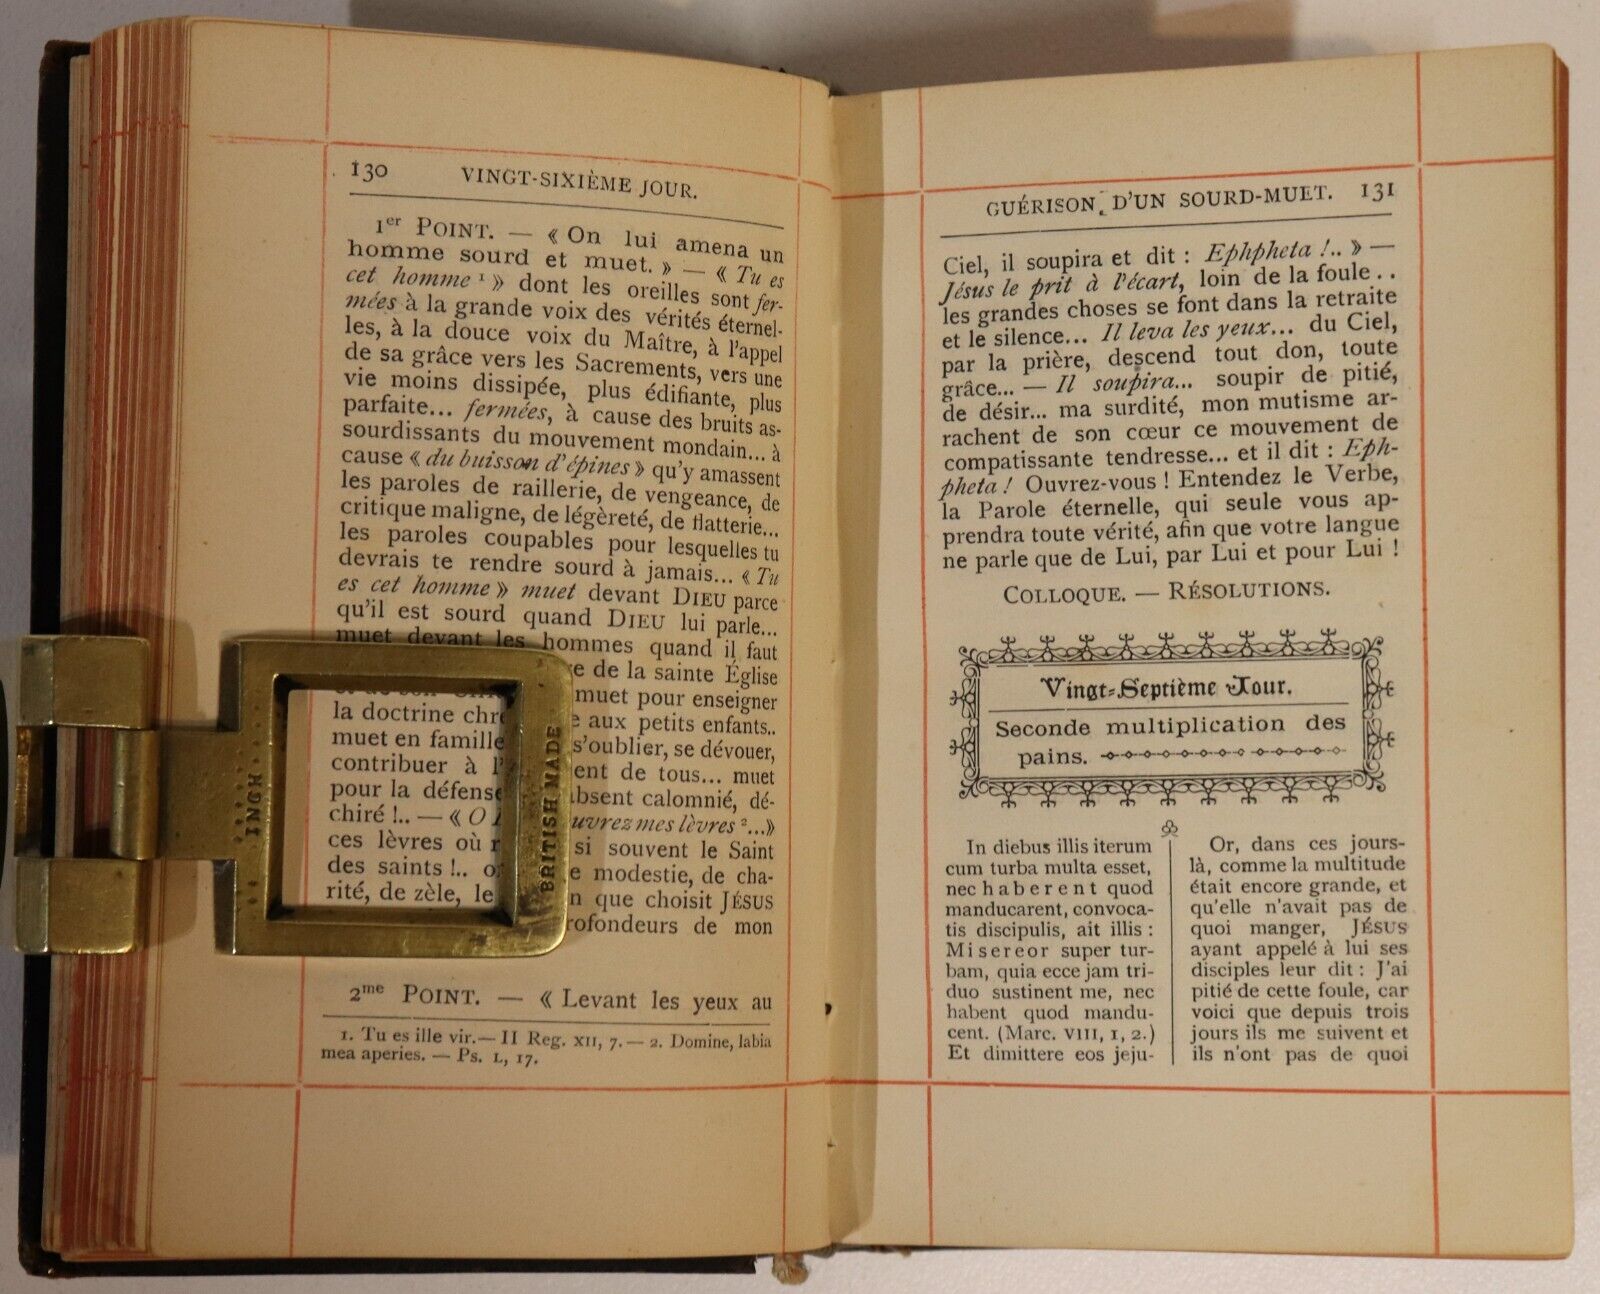 130 VINGT-SIXIÈME JOUR.
1er POINT. — « On lui amena un
homme sourd et muet. » — « Tu es
cet homme 1 » dont les oreilles sont fer-
mées à la grande voix des vérités éternel-
les, à la douce voix du Maître, à l'appel
de sa grâce vers les Sacrements, vers une
vie moins dissipée, plus édifiante, plus
parfaite... fermées, à cause des bruits as-
sourdissants du mouvement mondain... à
cause « du buisson d'épines » qu'y amassent
les paroles de raillerie, de vengeance, de
critique maligne, de légèreté, de flatterie...
les paroles coupables pour lesquelles tu
devrais te rendre sourd à jamais... « Tu
es cet homme » muet devant DIEU parce
qu'il est sourd quand DIEU lui parle...
muet devant les hommes quand il faut
de la sainte Église
muet pour enseigner
la doctrine aux petits enfants..
muet en famille s'oublier, se dévouer,
contribuer à de tous... muet
pour la calomnié, dé-
chiré !.. — « O mes lèvres 2...»
ces lèvres où si souvent le Saint
des saints !.. modestie, de cha-
rité, de zèle, que choisit JÉSUS
de mon
2me POINT. — « Levant les yeux au
1. Tu es ille vir.— II Reg. XII, 7. — 2. Domine, labia
mea aperies. — Ps. L, 17.
INGH
BRITISH MADE
GUÉRISON D'UN SOURD-MUET. 131
Ciel, il soupira et dit : Ephpheta !.. » —
Jésus le prit à l'écart, loin de la foule . .
les grandes choses se font dans la retraite
et le silence... Il leva les yeux... du Ciel,
par la prière, descend tout don, toute
grâce... — Il soupira... soupir de pitié,
de désir... ma surdité, mon mutisme ar-
rachent de son cœur ce mouvement de
compatissante tendresse... et il dit : Eph-
pheta ! Ouvrez-vous ! Entendez le Verbe,
la Parole éternelle, qui seule vous ap-
prendra toute vérité, afin que votre langue
ne parle que de Lui, par Lui et pour Lui !
COLLOQUE. — RÉSOLUTIONS.
Vingt-Septième Jour.
Seconde multiplication des
pains.
In diebus illis iterum
cum turba multa esset,
nec haberent quod
manducarent, convoca-
tis discipulis, ait illis :
Misereor super tur-
bam, quia ecce jam tri-
duo sustinent me, nec
habent quod mandu-
cent. (Marc. VIII, 1, 2.)
Et dimittere eos jeju-
Or, dans ces jours-
là, comme la multitude
était encore grande, et
qu'elle n'avait pas de
quoi manger, JÉSUS
ayant appelé à lui ses
disciples leur dit : J'ai
pitié de cette foule, car
voici que depuis trois
jours ils me suivent et
ils n'ont pas de quoi